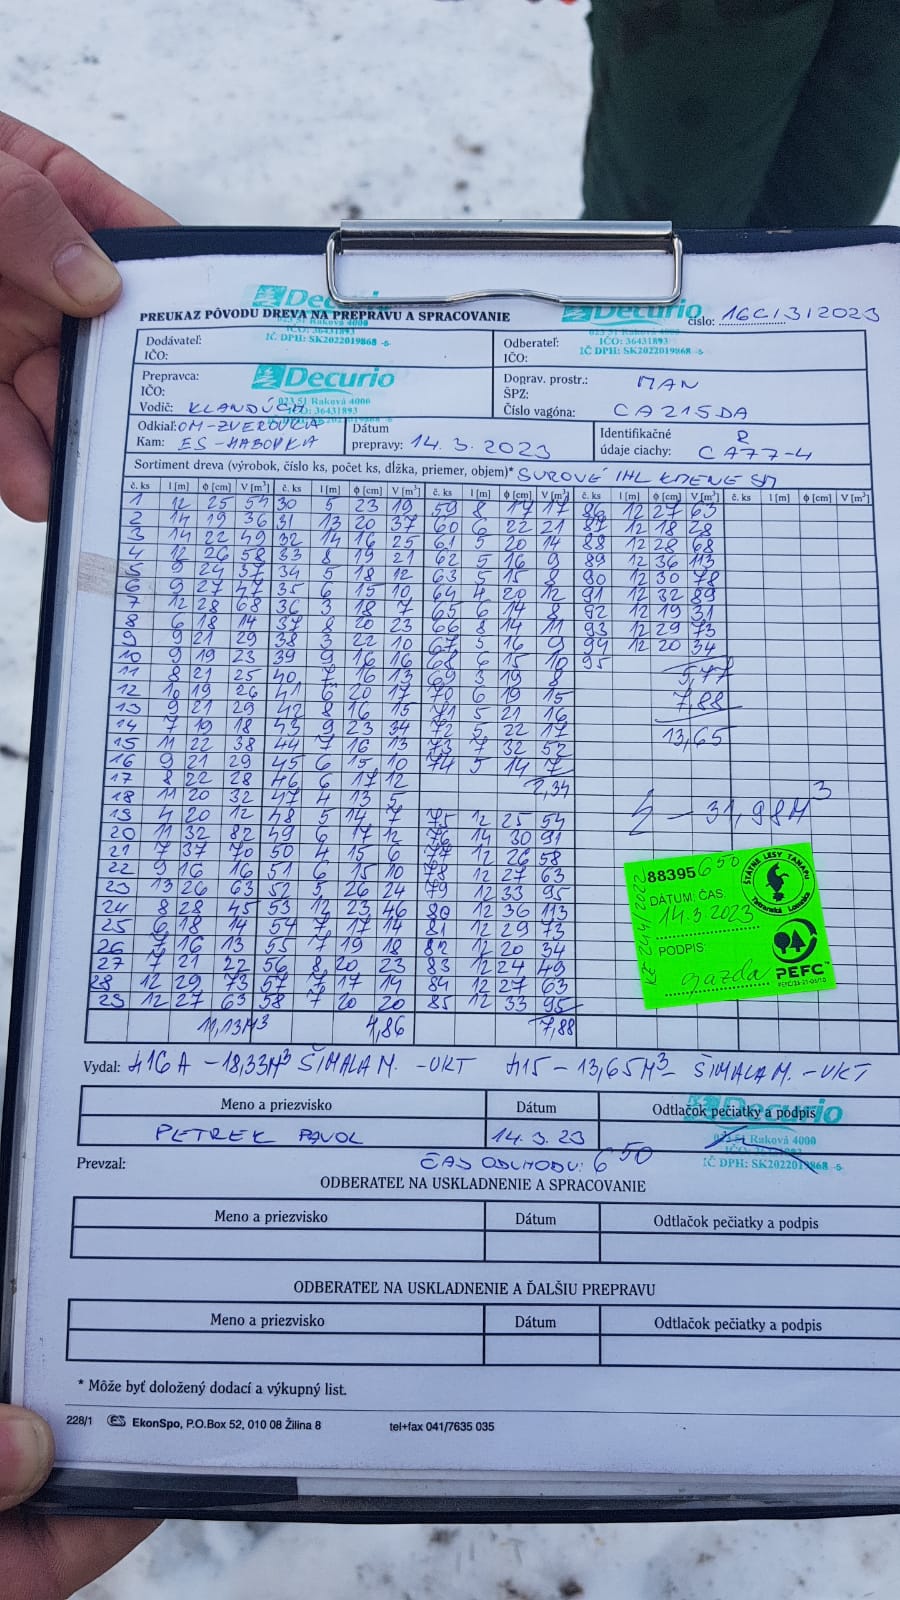 Decurio
PREUKAZ PÔVODU DREVA NA PREPRAVU A SPRACOVANIE
číslo: 16C/3/2023
023 51 Raková 4000
IČO: 36431893
IČ DPH: SK2022019868 -5-
Decurio
IČO: 36431893
IČ DPH: SK2022019868 -5-
Dodávateľ:
IČO:
Odberateľ:
IČO:
Prepravca:
IČO:
Decurio
023 51 Raková 4000
IČO: 36431893
Vodič:
Doprav. prostr.: MAN
ŠPZ:
Číslo vagóna: CA215DA
Odkiaľ: OM-ZVEROVKA
Kam: ES-HABOVKA
Dátum
prepravy: 14.3.2023
Identifikačné
údaje ciachy: CA77-4
Sortiment dreva (výrobok, číslo ks, počet ks, dĺžka, priemer, objem)* SUROVÉ IHL KMENE SM
č. ks l [m] ϕ [cm] V [m³] č. ks l [m] ϕ [cm] V [m³] č. ks l [m] ϕ [cm] V [m³] č. ks l [m] ϕ [cm] V [m³] č. ks l [m] ϕ [cm] V [m³]
1 12 25 54 30 5 23 19 59 8 17 17 86 12 27 63
2 14 19 36 31 13 20 37 60 6 22 21 87 12 18 28
3 14 22 49 32 14 16 25 61 5 20 14 88 12 28 68
4 12 26 58 33 8 19 21 62 5 16 9 89 12 36 113
5 9 24 37 34 5 18 12 63 5 15 8 90 12 30 78
6 9 27 47 35 6 15 10 64 4 20 12 91 12 32 89
7 12 28 68 36 3 18 7 65 6 14 8 92 12 19 31
8 6 18 14 37 8 20 23 66 8 14 11 93 12 29 73
9 9 21 29 38 3 22 10 67 5 16 9 94 12 20 34
10 9 19 23 39 9 16 16 68 6 15 10 95
11 8 21 25 40 7 16 13 69 3 19 8
12 10 19 26 41 6 20 17 70 6 19 15 7,88
13 9 21 29 42 8 16 15 71 5 21 16
14 7 19 18 43 9 23 34 72 5 22 17 13,65
15 11 22 38 44 7 16 13 73 7 32 52
16 9 21 29 45 6 15 10 74 5 14 7
17 8 22 28 46 6 17 12 2,34
18 11 20 32 47 4 13 5
19 4 20 12 48 5 14 7 75 12 25 54
20 11 32 82 49 6 17 12 76 14 30 91
21 7 37 70 50 4 15 6 77 12 26 58
22 9 16 16 51 6 15 10 78 12 27 63
23 13 26 63 52 5 26 24 79 12 33 95
24 8 28 45 53 12 23 46 80 12 36 113
25 6 18 14 54 7 17 14 81 12 29 73
26 7 16 13 55 7 19 18 82 12 20 34
27 7 21 22 56 8 20 23 83 12 24 49
28 12 29 73 57 7 17 14 84 12 27 63
29 12 27 63 58 7 20 20 85 12 33 95
11,13M³ 4,86 7,88
31,98M³
88395 650
DÁTUM: ČAS:
14.3.2023
PODPIS:
gazda
ŠTÁTNE LESY TANAPu
Tatranská Lomnica
PEFC™
Vydal: 416A -18,33M³ ŠIMALA M. -UKT 415 -13,65M³- ŠIMALA M. -UKT
Meno a priezvisko Dátum Odtlačok pečiatky a podpis
Decurio
PETREK PAVOL 14.3.23
023 51 Raková 4000
IČ DPH: SK2022019868 -5-
Prevzal: ČAS ODCHODU: 6 50
ODBERATEĽ NA USKLADNENIE A SPRACOVANIE
Meno a priezvisko Dátum Odtlačok pečiatky a podpis
ODBERATEĽ NA USKLADNENIE A ĎALŠIU PREPRAVU
Meno a priezvisko Dátum Odtlačok pečiatky a podpis
* Môže byť doložený dodací a výkupný list.
228/1 ES EkonSpo, P.O.Box 52, 010 08 Žilina 8 tel+fax 041/7635 035